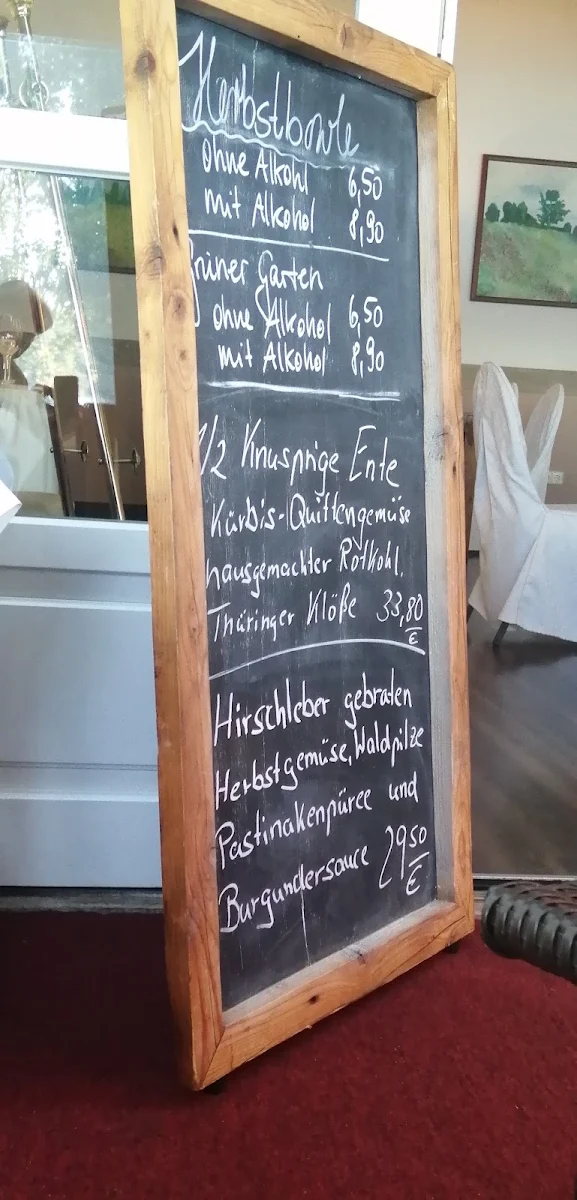 Herbstbowle
ohne Alkohl 6,50
mit Alkohol 8,90
Grüner Garten
ohne Alkohol 6,50
mit Alkohol 8,90
1/2 Knusprige Ente
Kürbis-Quittengemüse
hausgemachter Rotkohl,
Thüringer Klöße 33,80
€
Hirschleber gebraten
Herbstgemüse, Waldpilze
Pastinakenpüree und
Burgundersauce 29,50
€